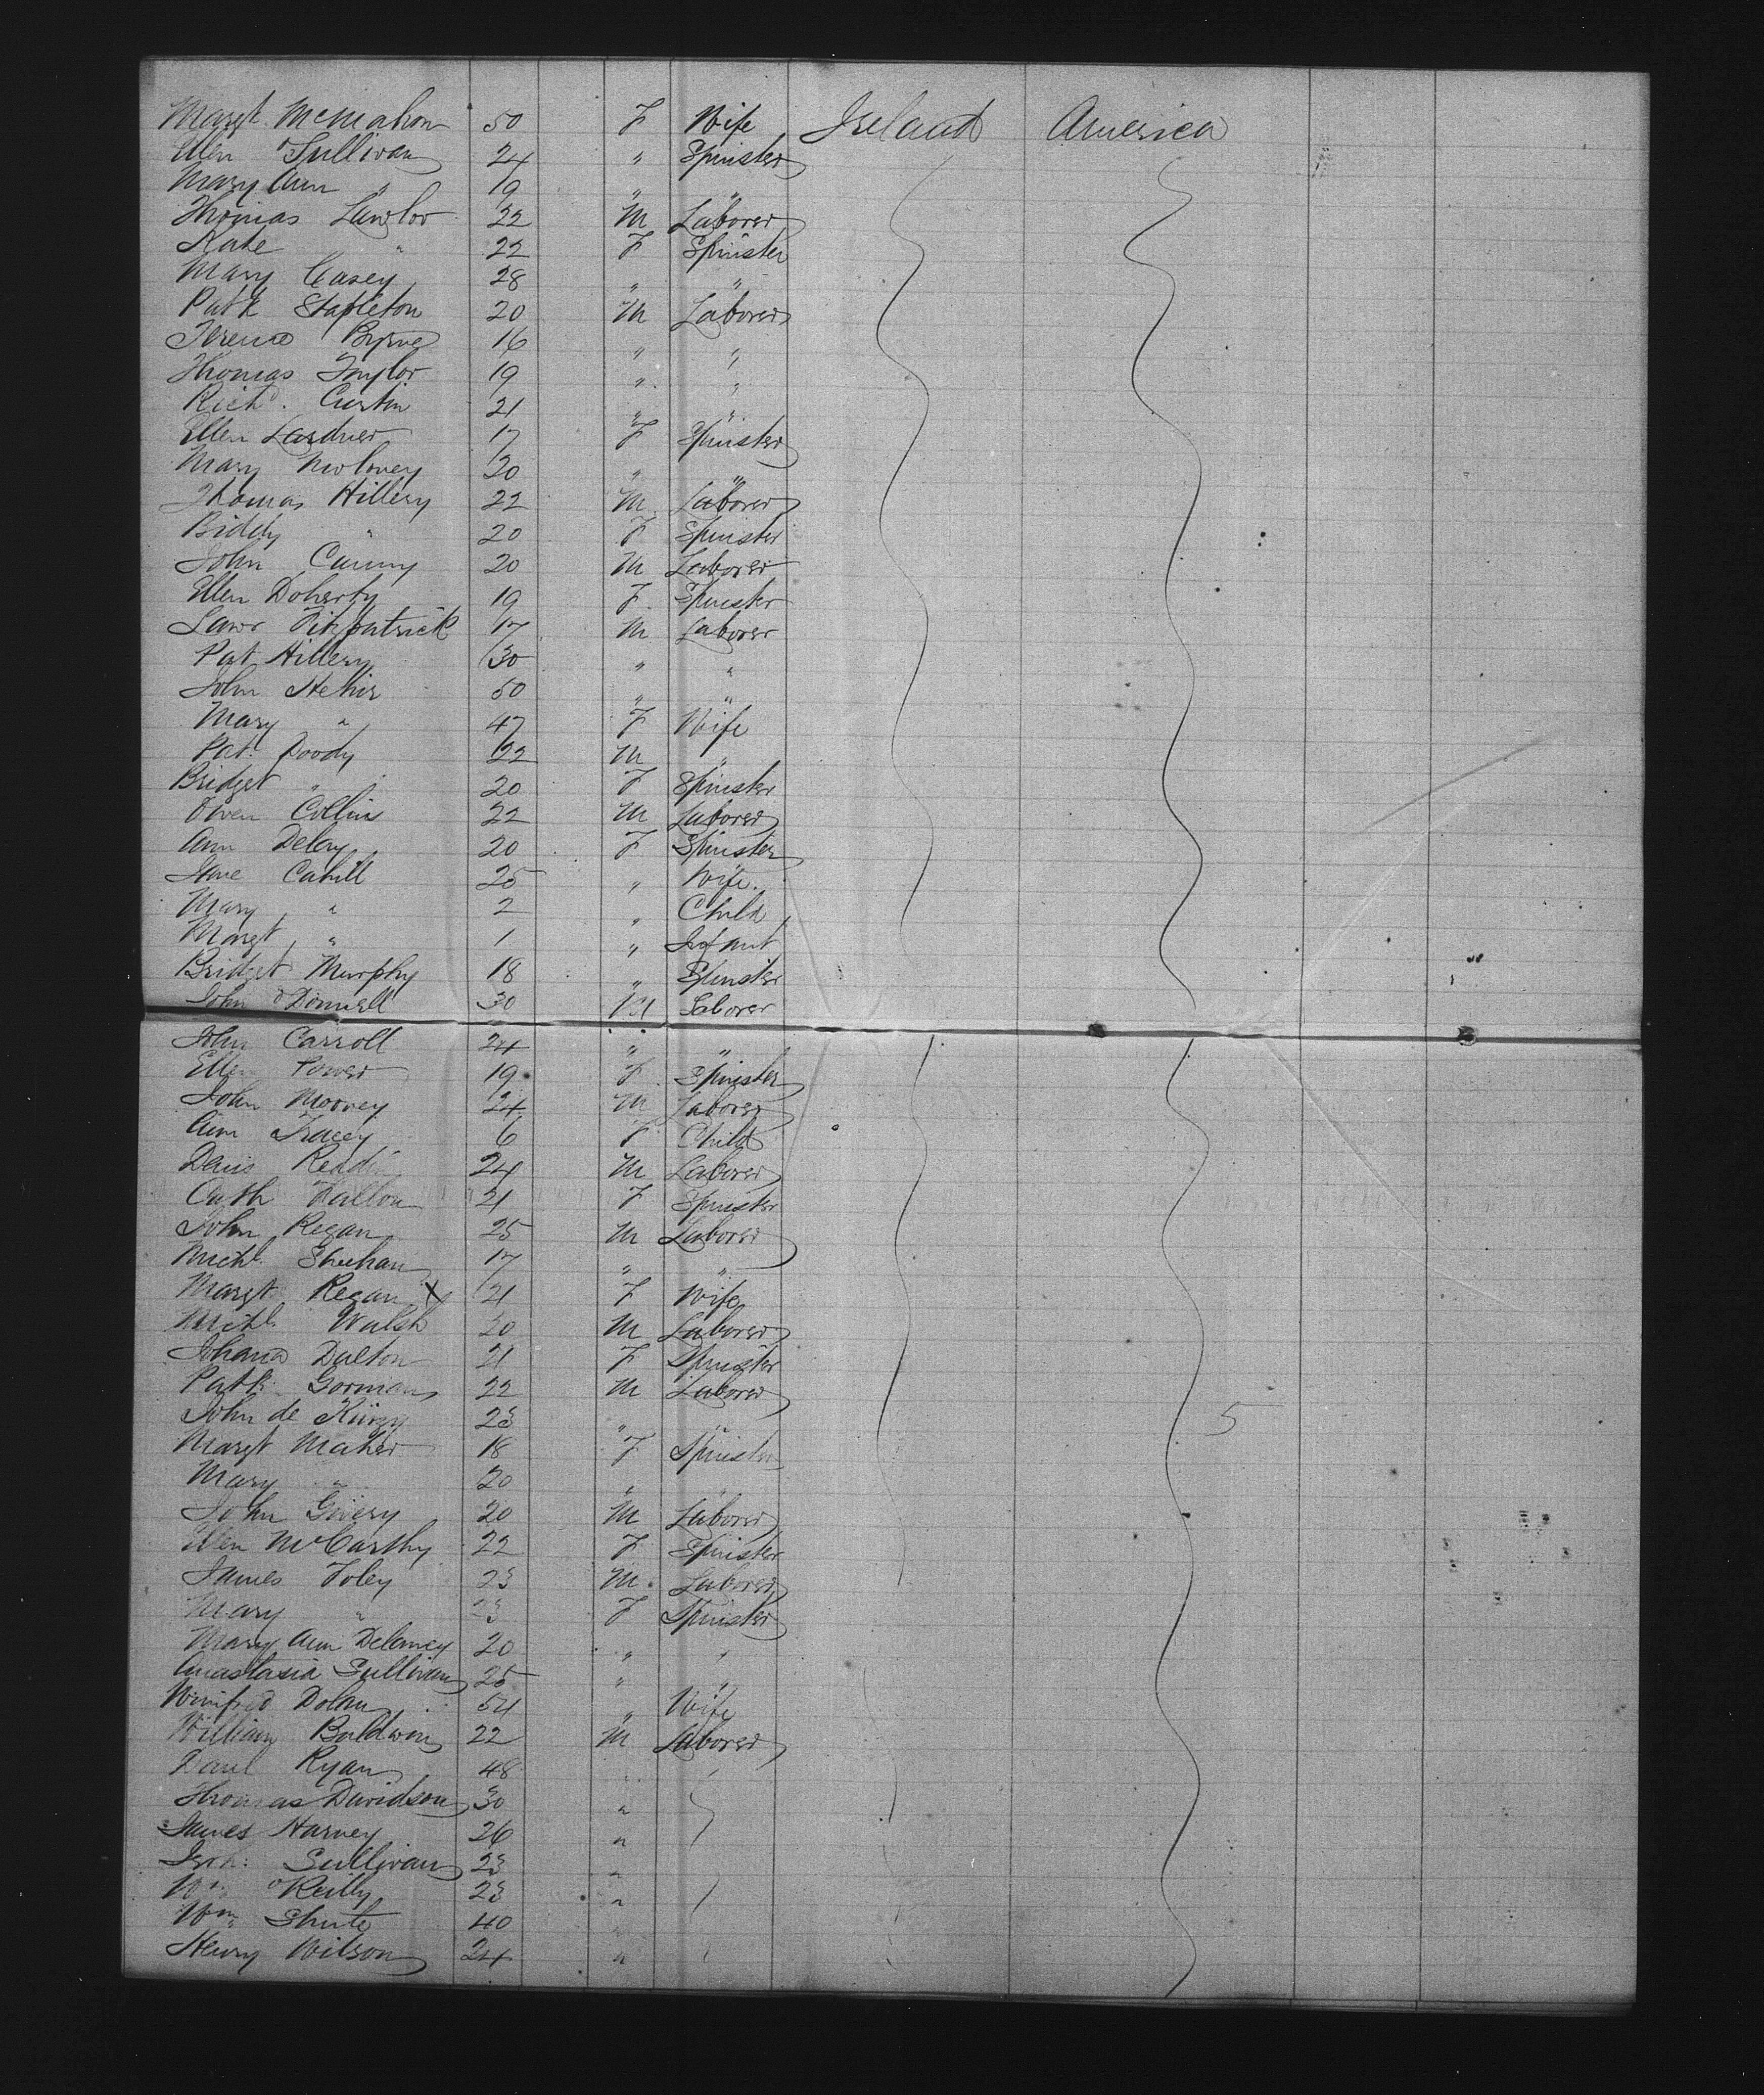 Margt McMahon 50 F Wife Ireland America
Ellen O'Sullivan 24 " Spinster
Mary Ann " 19 " "
Thomas Lawlor 22 M Laborer
Kate " 22 F Spinster
Mary Casey 28 " "
Patk Stapleton 20 M Laborer
Terence Byrne 16 " "
Thomas Taylor 19 " "
Richd. Curtin 21 " "
Ellen Lardner 17 F Spinster
Mary Moloney 20 " "
Thomas Hillery 22 M Laborer
Biddy " 20 F Spinster
John Canny 20 M Laborer
Ellen Doherty 19 F Spinster
Lawr Fitzpatrick 17 M Laborer
Pat Hillery 30 " "
John Hehir 50 " "
Mary " 47 F Wife
Pat. Doody 22 M "
Bridget " 20 F Spinster
Owen Collins 22 M Laborer
Ann Delay 20 F Spinster
Jane Cahill 25 " Wife
Mary " 2 " Child
Margt " 1 " Infant
Bridget Murphy 18 " Spinster
John O'Donnell 30 M Laborer
John Carroll 24 " "
Ellen Power 19 F Spinster
John Mooney 24 M Laborer
Ann Tracey 6 F Child
Denis 24 M Laborer
Cath Fallon 21 F Spinster
John Regan 25 M Laborer
Michl. Sheehan 17 " "
Margt Regan X 21 F Wife
Michl. Walsh 20 M Laborer
Johana Dalton 21 F Spinster
Patk Gorman 22 M Laborer
John de 23 " " 5
Margt Maher 18 F Spinster
Mary " 20 " "
John 20 M Laborer
Ellen McCarthy 22 F Spinster
James Foley 23 M. Laborer
Mary " 23 F Spinster
Mary Ann Delaney 20 " "
Anastasia Sullivan 25 " "
Winifred Dolan 54 " Wife
William Baldwin 22 M Laborer
Danl Ryan 48 "
Thomas Davidson 30 "
James Harvey 26 "
Sullivan 23 "
Wm O'Reilly 23 "
Wm Shute 40 "
Henry Wilson 24 "